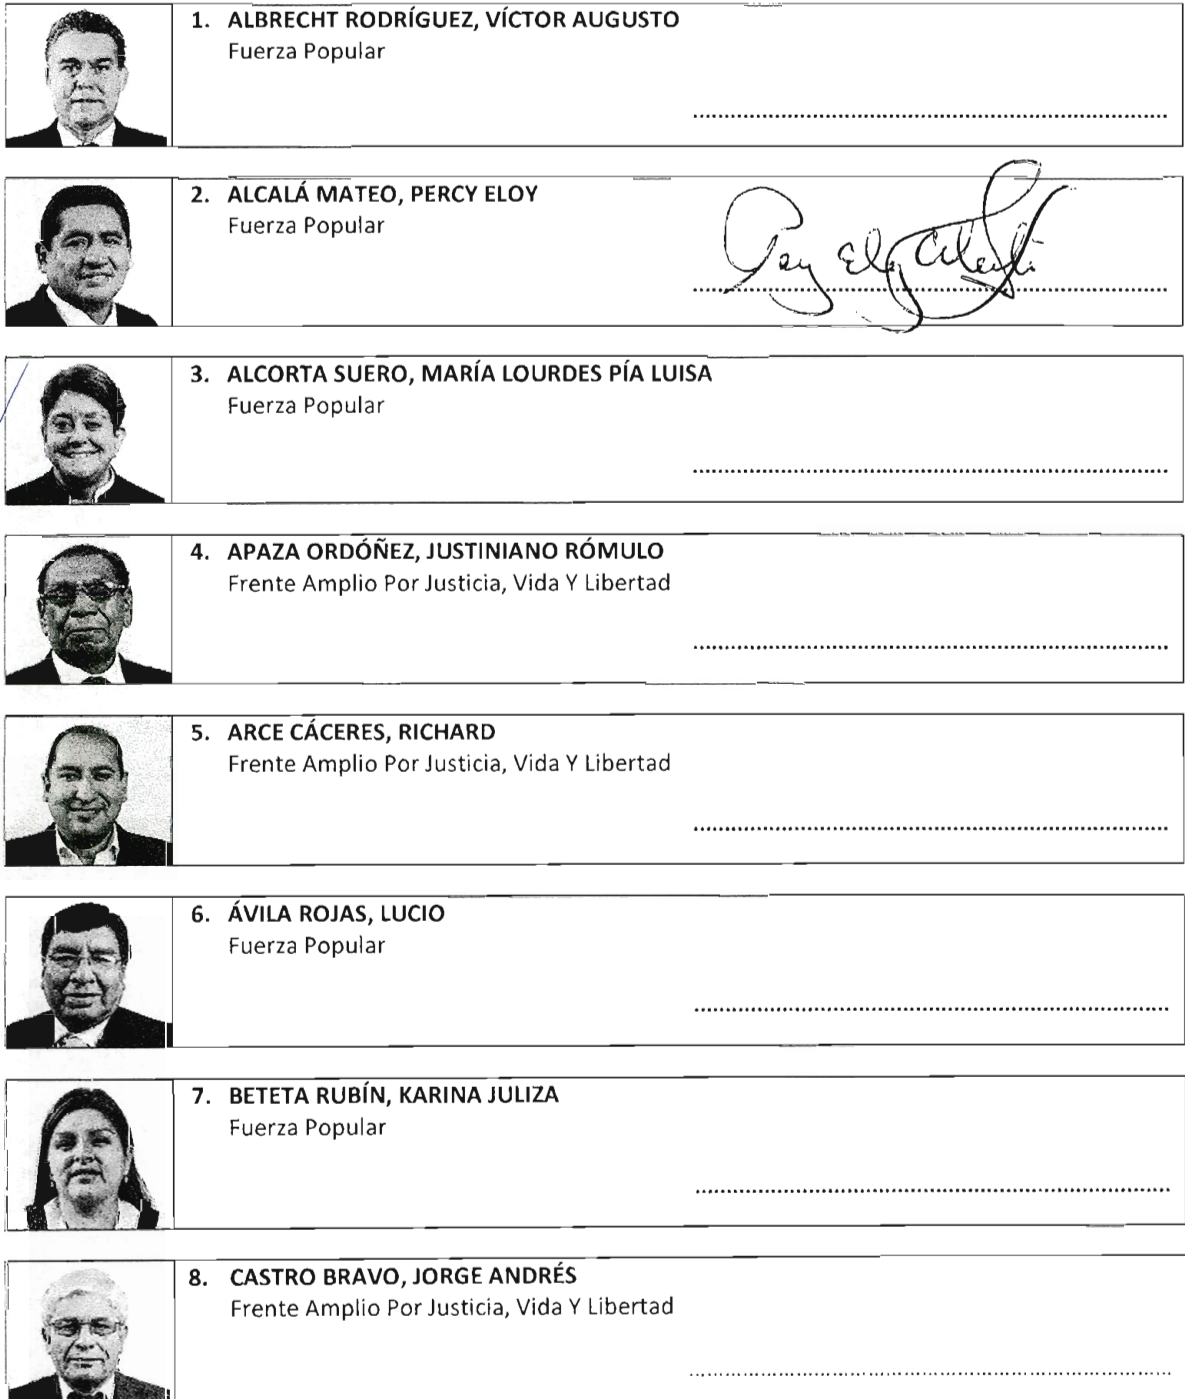 1. ALBRECHT RODRÍGUEZ, VÍCTOR AUGUSTO
Fuerza Popular
2. ALCALÁ MATEO, PERCY ELOY
Fuerza Popular
3. ALCORTA SUERO, MARÍA LOURDES PÍA LUISA
Fuerza Popular
4. APAZA ORDÓÑEZ, JUSTINIANO RÓMULO
Frente Amplio Por Justicia, Vida Y Libertad
5. ARCE CÁCERES, RICHARD
Frente Amplio Por Justicia, Vida Y Libertad
6. ÁVILA ROJAS, LUCIO
Fuerza Popular
7. BETETA RUBÍN, KARINA JULIZA
Fuerza Popular
8. CASTRO BRAVO, JORGE ANDRÉS
Frente Amplio Por Justicia, Vida Y Libertad